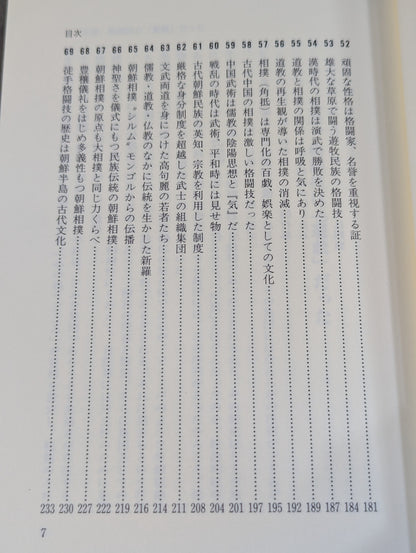 目次
52 頑固な性格は格闘家、名誉を重視する証……181
53 雄大な草原で闘う遊牧民族の格闘技……184
54 漢時代の相撲は演武で勝敗を決めた……187
55 道教と相撲の関係は呼吸と気にあり……189
56 道教の再生観が導いた相撲の消滅……192
57 相撲（角抵）は専門化の百戯、娯楽としての文化……195
58 古代中国の相撲は激しい格闘技だった……197
59 中国武術は儒教の陰陽思想と「気」だ……201
60 戦乱の時代は武術、平和時には見せ物……204
61 古代朝鮮民族の英知、宗教を利用した制度……208
62 厳格な身分制度を超越した武士の組織集団……211
63 文武両道を身につけた高句麗の若者たち……214
64 儒教・道教・仏教のなかに伝統を生かした新羅……216
65 朝鮮相撲〝シルム〟モンゴルからの伝播……219
66 神聖さを儀式にもつ民族伝統の朝鮮相撲……222
67 朝鮮相撲の原点も大相撲と同じ力くらべ……227
68 豊穣儀礼をはじめ多義性もつ朝鮮相撲……230
69 徒手格闘技の歴史は朝鮮半島の古代文化……233
7